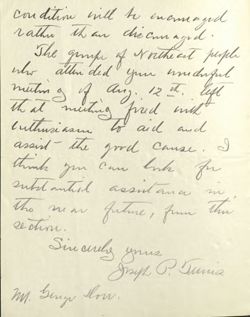 condition will be encouraged
rather than discouraged.
The group of Northeast people
who attended your wonderful
meeting of Aug. 12th, left
that meeting fired with
enthusiasm to aid and
assist the good cause. I
think you can look for
substantial assistance in
the near future, from this
section.
Sincerely yours
Joseph P.
Mr. George